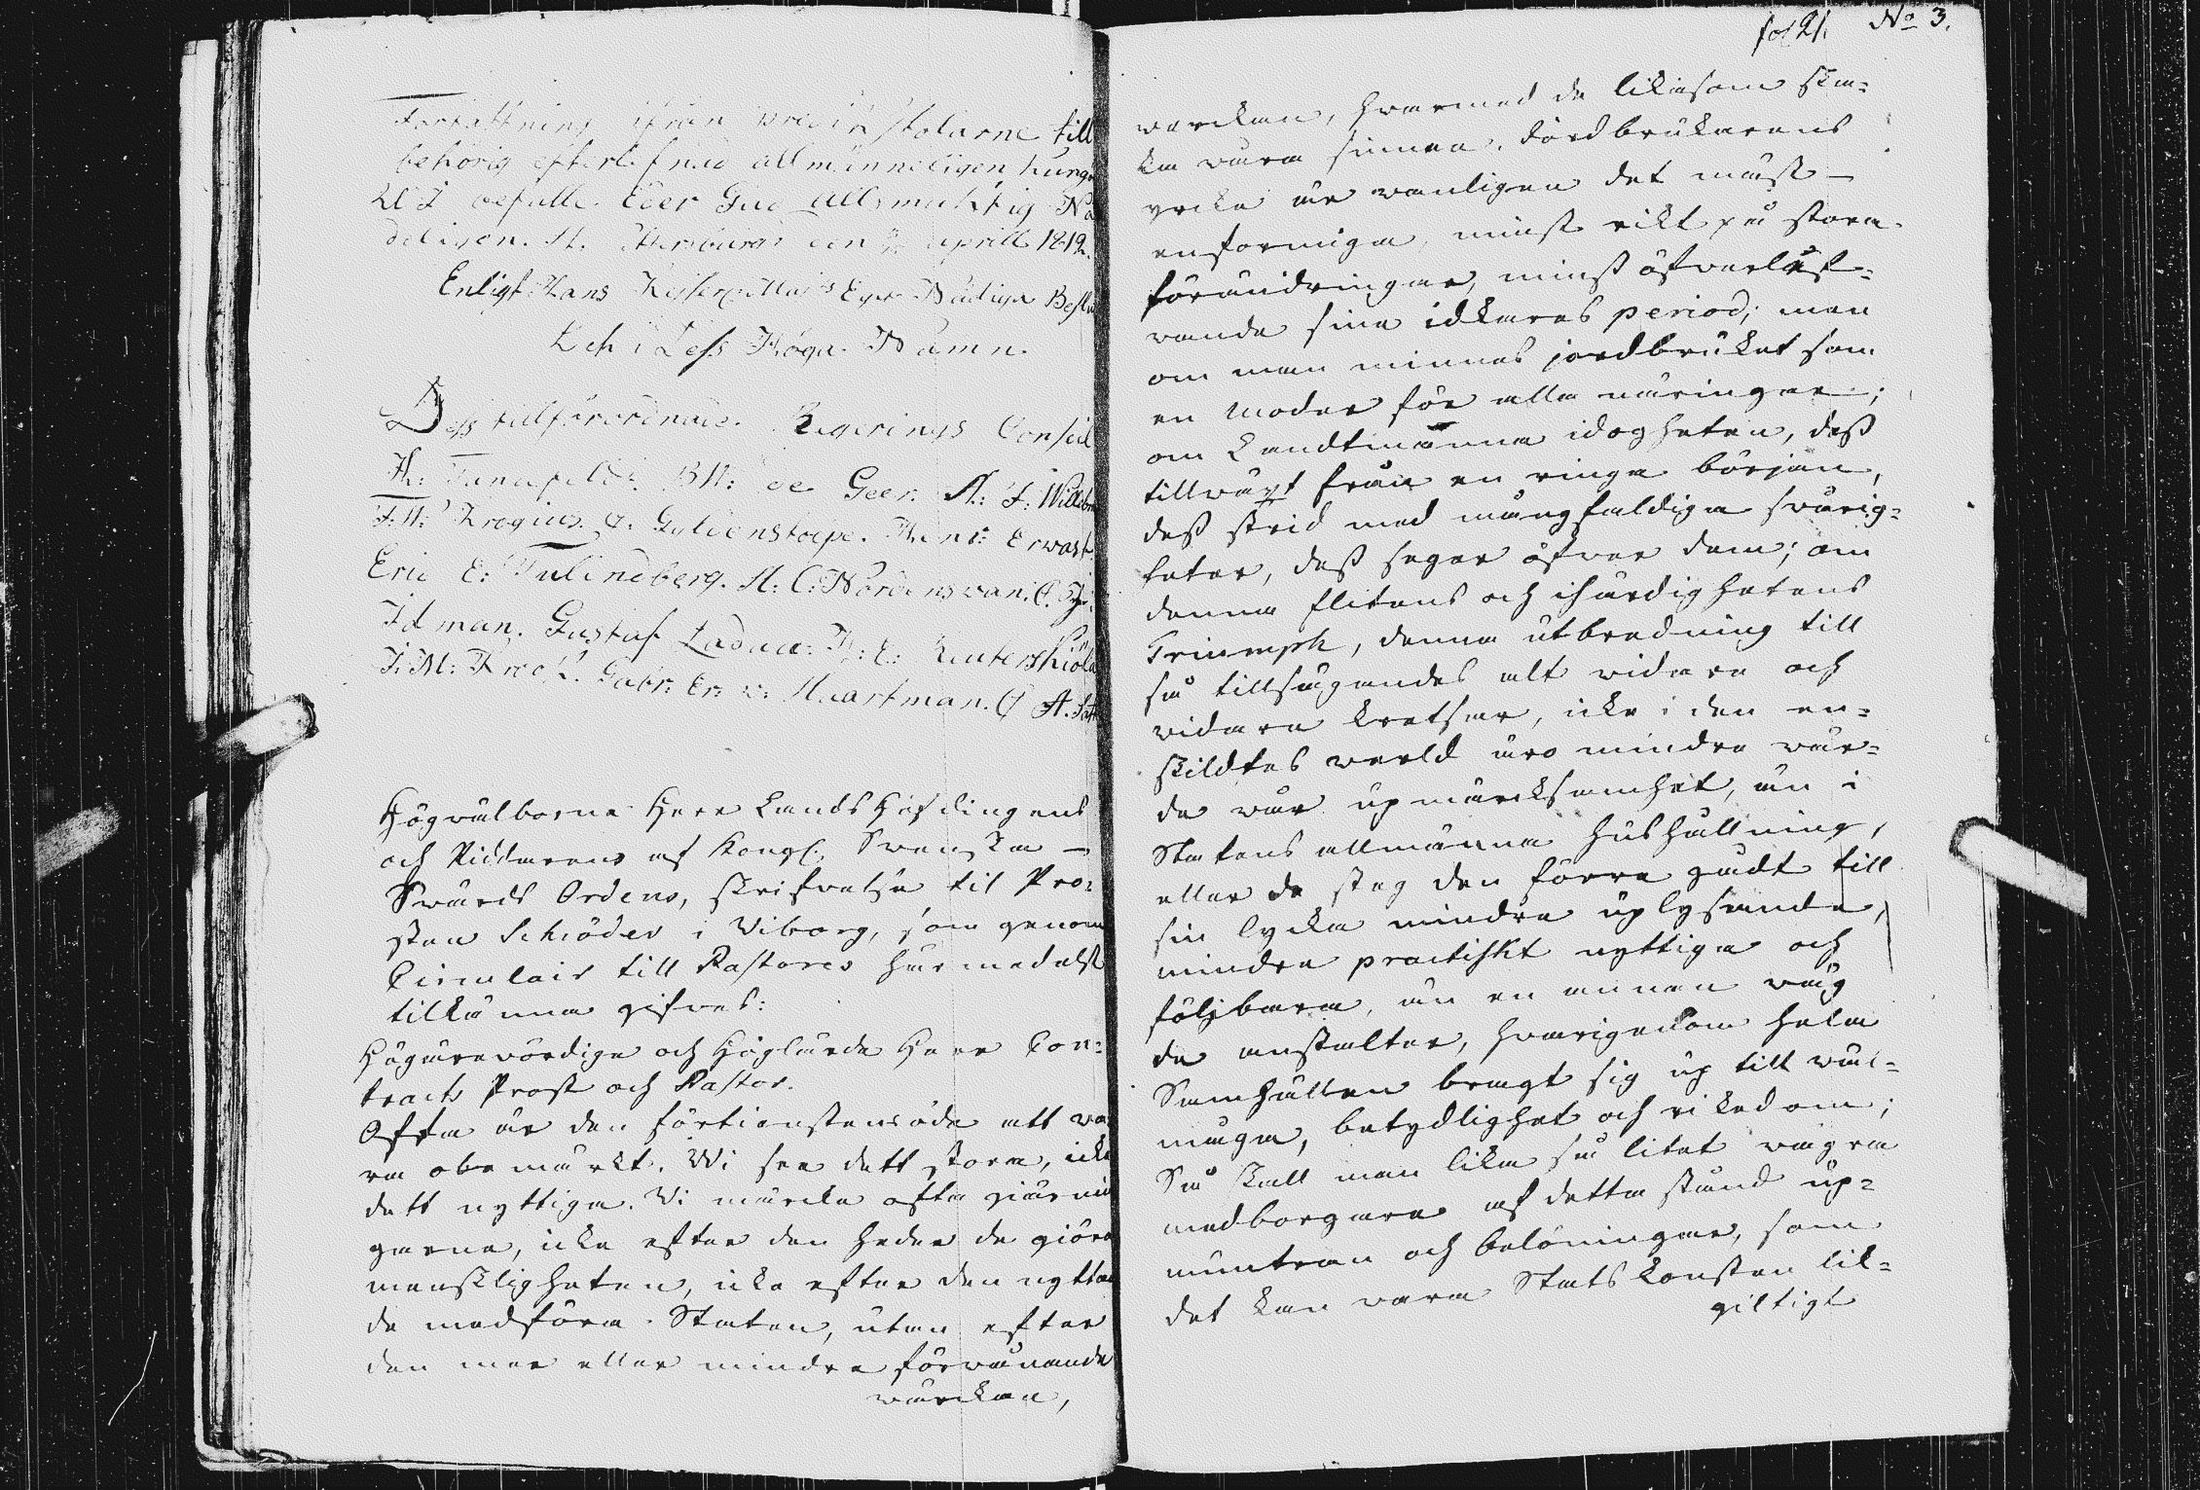 Författning ifrån Predikstolarne till
behörig efterlefnad allmänneligen kungö
Vi befalle Eder Gud Allsmächtig Nå
deligen. St. Petersburg den Aprill 1812.
Enligt Hans Keiserl. Maj:ts Eget Nådiga Beslu
Och i Dess Höga Namn.
Dess tillförordnade Regerings Conseil
H: Tandefelt. de Geer. A: F: Willebr
F: W: Krogius. Gyldenstolpe. Henr: Erwast.
Eric E: Tulindberg. A: C: Nordensvan. C. Fr:
Idman. Gustaf Ladau. Reuterskiöld
I: M: Krook. Gabr: Er: v: Haartman. A. Fatt
Högvälborne Herr Landshöfdingens
och Riddarens af Kongl. Svenska
Svärds Ordens, skrifvelse til Pro-
sten Schröder i Viborg, som genom
Circulair till Pastores härmedelst
tilkänna gifves:
Högärevördige och Höglärde Herr Con-
tracts Prost och Pastor.
Ofta är den förtienstens öde att va
ra obemärkt. Vi see dett stora, icke
dett nyttiga. Vi märcka ofta giärnin
garna, icke efter den heder de giöra
menskligheten, icke efter den nytta
de medföra Staten, utan efter
den mer eller mindre förvånande
värckan,
fol 21. No 3.
verckan, hvarmed de likasom ska-
ka våra sinnen. Jordbrukarens
yrcke är vanligen det mäst
enformiga, minst rikt på stora
förändringar, minst öfverlef-
vande sine idkares period; men
om man minnes jordbruket som
en moder för alla näringar;
om Landtmanna idogheten, dess
tillväxt från en ringa början,
dess strid med mångfaldiga svårig-
heter, dess seger öfver dem; om
denna flitens och ihärdighetens
Triumph, denna utbredning till
så tillsägandes alt vidare och
vidare kretsar, icke i den en-
skildtes verld äro mindre vär-
de vår upmärcksamhet, än i
Statens allmänna hushållning,
eller de steg den förre gådt till
sin lycka mindre uplysande,
mindre practiskt nyttiga och
följbara, än en annan väg
de anstalter, hvarigenom hela
Samhällen bragt sig up till väl-
måga, betydlighet och rikedom;
Så skall man lika så litet vägra
medborgare af detta stånd up-
muntran och belöningar, som
det kan vara Statskonsten lik-
giltigt